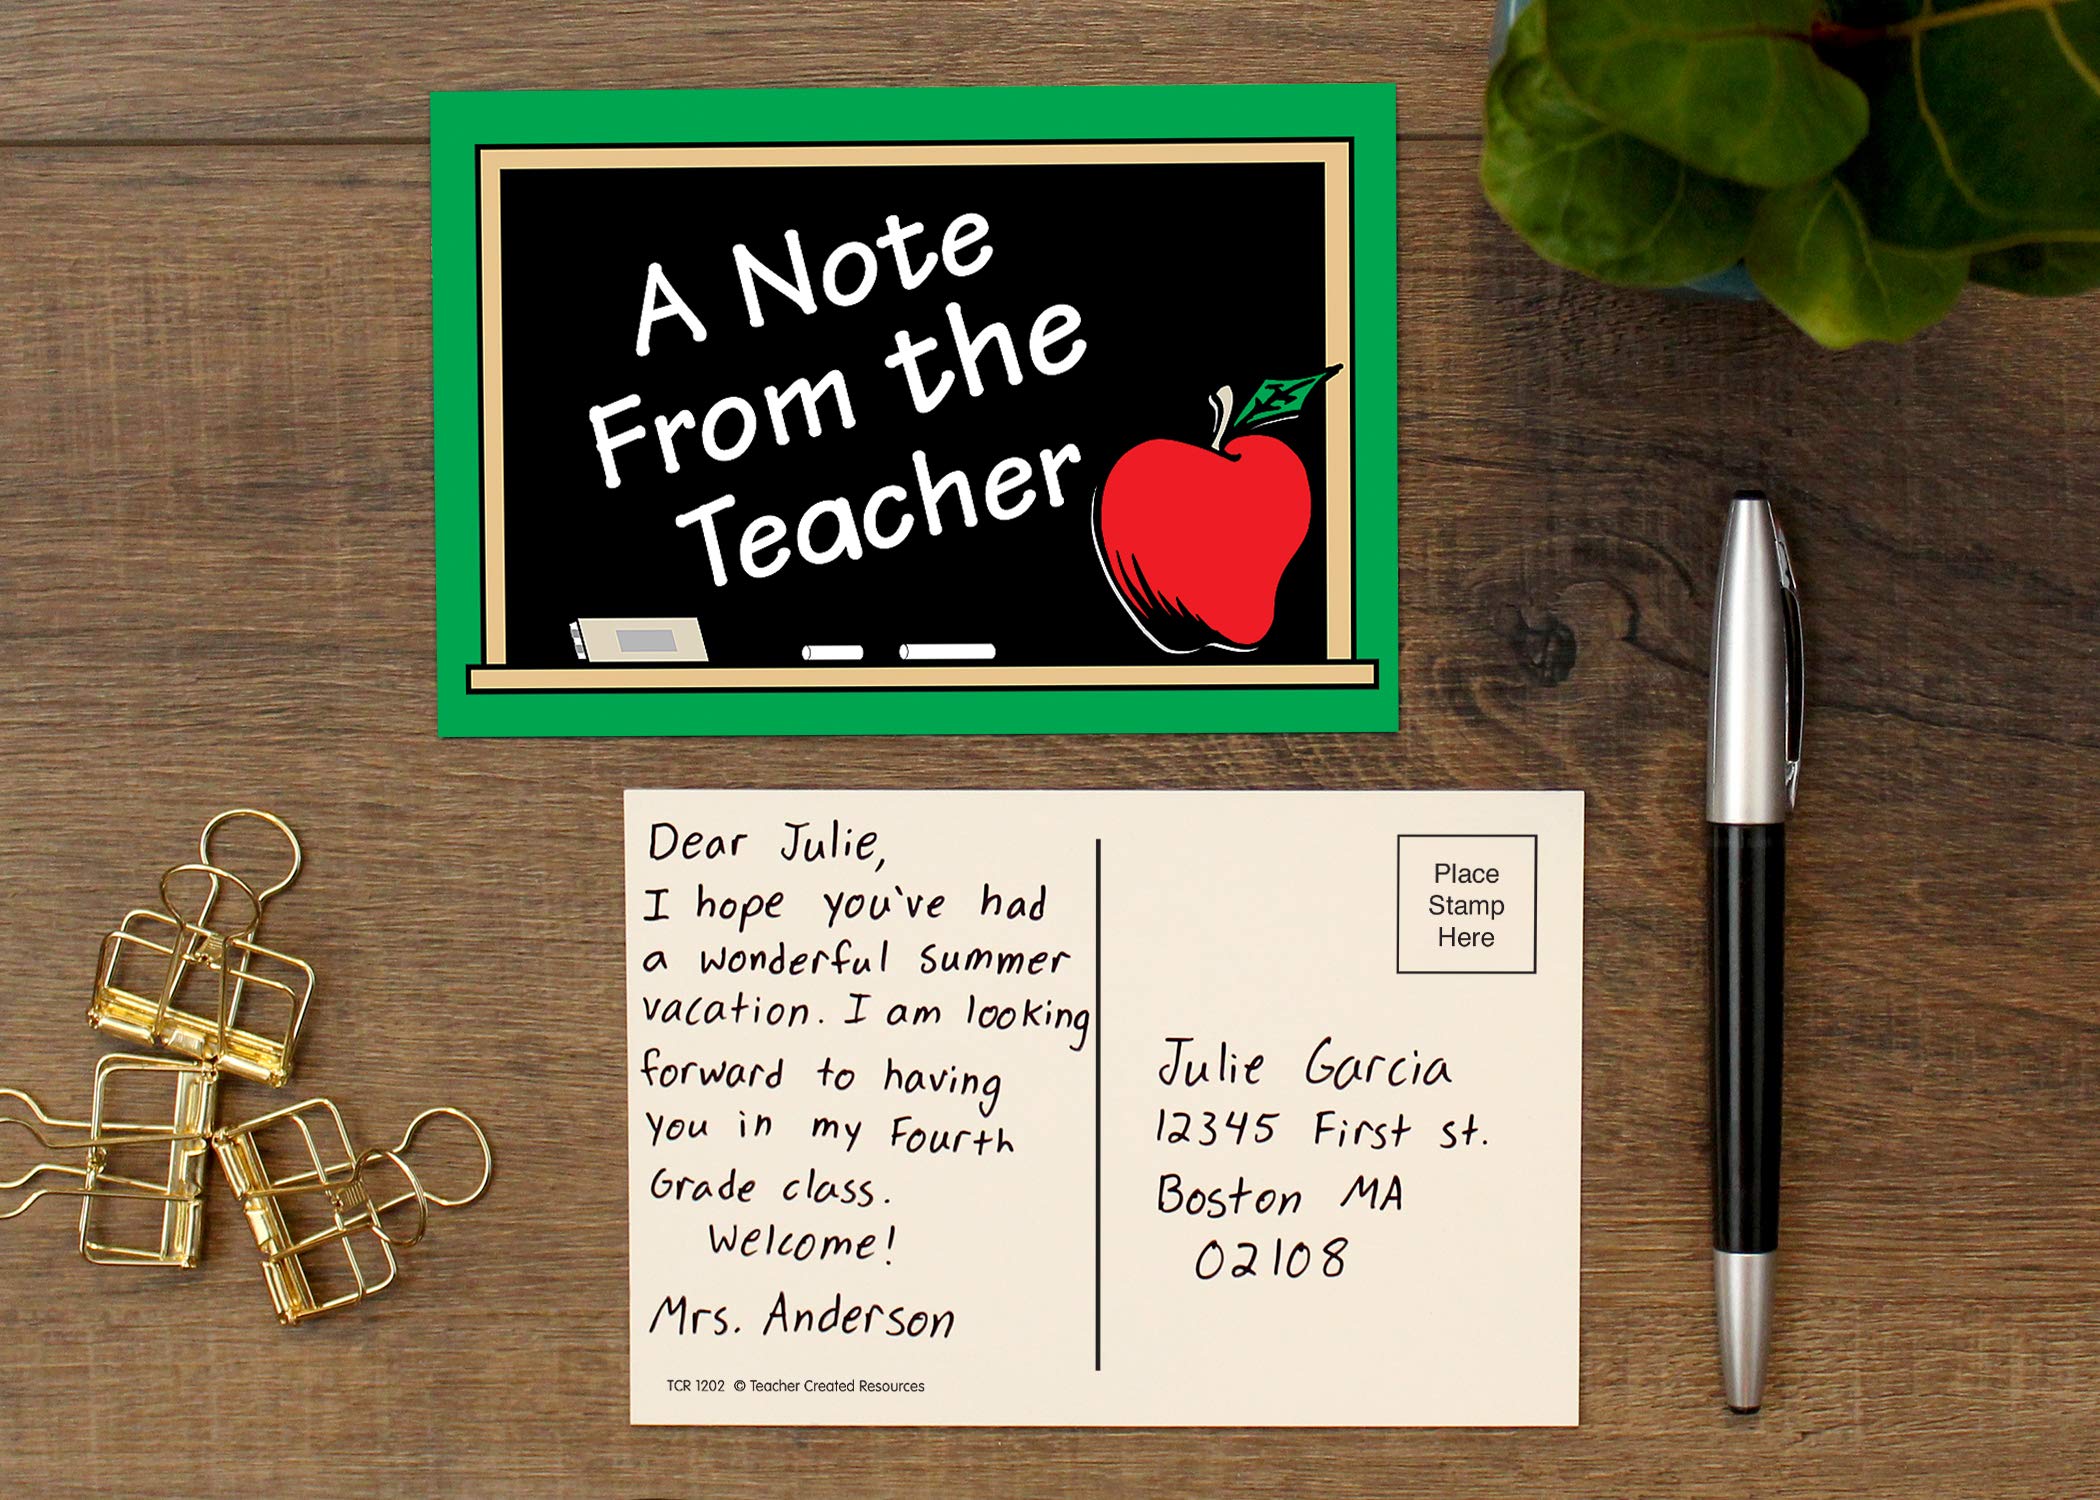 A Note
From the
Teacher
Dear Julie,
I hope you've had
a wonderful summer
vacation. I am looking
forward to having
you in my Fourth
Grade class.
Welcome!
Mrs. Anderson
TCR 1202 © Teacher Created Resources
Place
Stamp
Here
Julie Garcia
12345 First st.
Boston MA
02108